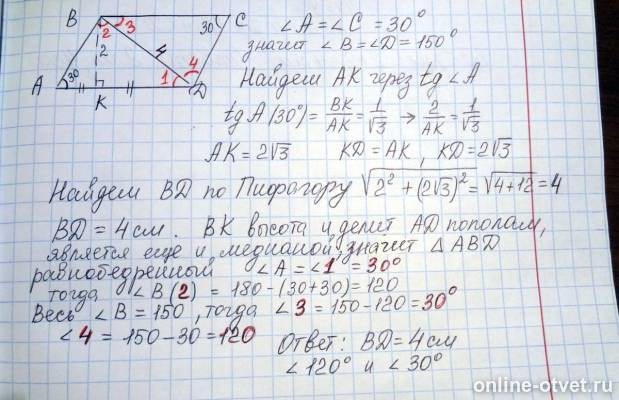 B 2 3 30° C
2 4 4
A 30° 1 D
K
∠A = ∠C = 30°
значит ∠B = ∠D = 150°
Найдем AK через tg ∠A
tg A (30°) = BK/AK = 1/√3 → 2/AK = 1/√3
AK = 2√3 KD = AK, KD = 2√3
Найдем BD по Пифагору √(2² + (2√3)²) = √(4+12) = 4
BD = 4 см. BK высота и делит AD пополам,
является еще и медианой, значит △ABD
равнобедренный ∠A = ∠1 = 30°
тогда ∠B(2) = 180 − (30+30) = 120
Весь ∠B = 150, тогда ∠3 = 150−120 = 30°
∠4 = 150−30 = 120
Ответ: BD = 4 см
∠120° и ∠30°
online-otvet.ru